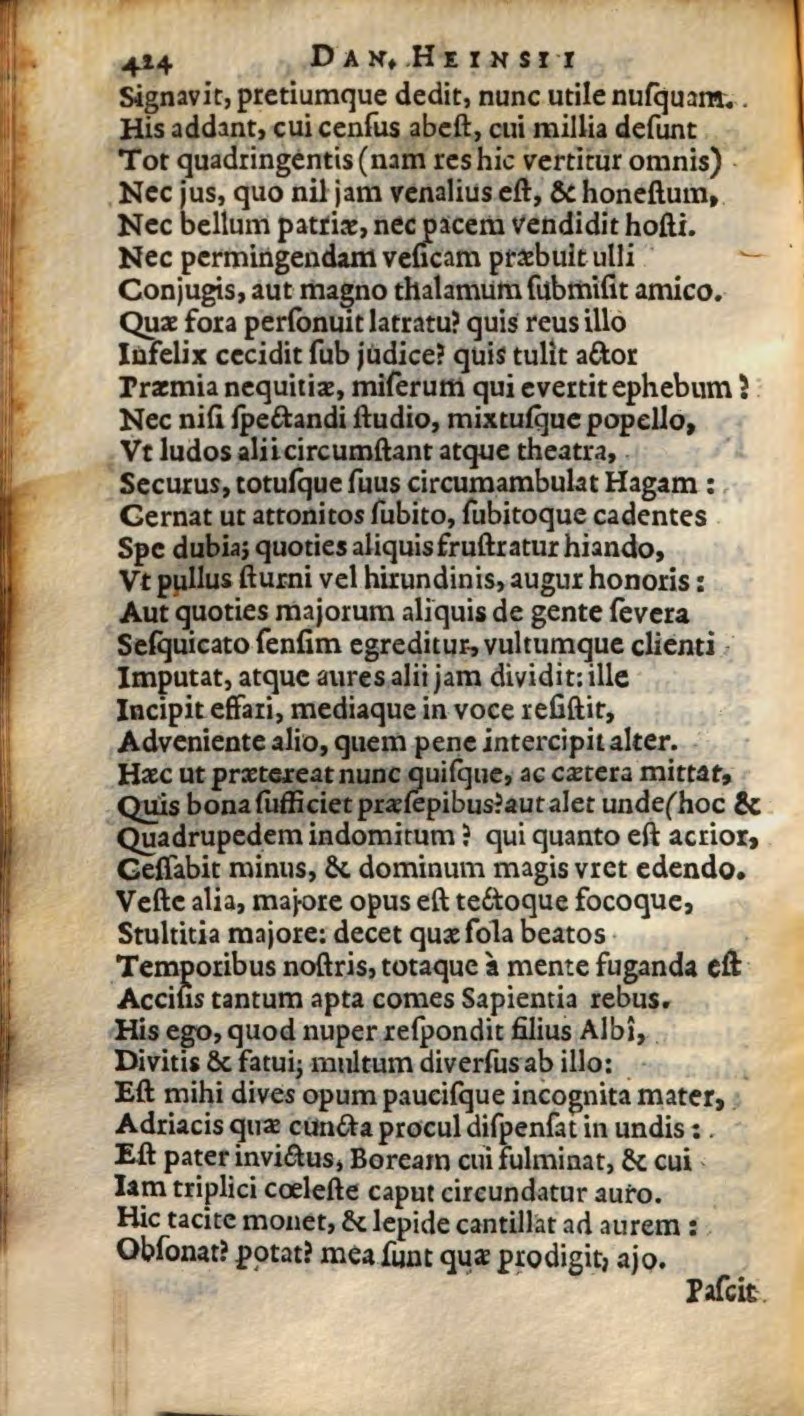 424 DAN. HEINSII
Signavit, pretiumque dedit, nunc utile nuſquam.
His addant, cui cenſus abeſt, cui millia deſunt
Tot quadringentis (nam res hic vertitur omnis)
Nec jus, quo nil jam venalius eſt, & honeſtum,
Nec bellum patriæ, nec pacem vendidit hoſti.
Nec permingendam veſicam præbuit ulli
Conjugis, aut magno thalamum ſubmiſit amico.
Quæ fora perſonuit latratu? quis reus illo
Infelix cecidit ſub judice? quis tulit actor
Præmia nequitiæ, miſerum qui evertit ephebum?
Nec niſi ſpectandi ſtudio, mixtuſque popello,
Vt ludos alii circumſtant atque theatra,
Securus, totuſque ſuus circumambulat Hagam:
Cernat ut attonitos ſubito, ſubitoque cadentes
Spe dubia; quoties aliquis fruſtratur hiando,
Vt pullus ſturni vel hirundinis, augur honoris:
Aut quoties majorum aliquis de gente ſevera
Seſquicato ſenſim egreditur, vultumque clienti
Imputat, atque aures alii jam dividit: ille
Incipit effari, mediaque in voce reſiſtit,
Adveniente alio, quem pene intercipit alter.
Hæc ut prætereat nunc quiſque, ac cætera mittat,
Quis bona ſufficiet præſepibus? aut alet unde (hoc &
Quadrupedem indomitum? qui quanto eſt acrior,
Ceſſabit minus, & dominum magis vret edendo.
Veſte alia, majore opus eſt tectoque focoque,
Stultitia majore: decet quæ ſola beatos
Temporibus noſtris, totaque à mente fuganda eſt
Acciſis tantum apta comes Sapientia rebus.
His ego, quod nuper reſpondit filius Albî,
Divitis & fatui; multum diverſus ab illo:
Eſt mihi dives opum pauciſque incognita mater,
Adriacis quæ cuncta procul diſpenſat in undis:
Eſt pater invictus, Boream cui fulminat, & cui
Iam triplici cœleſte caput circundatur auro.
Hic tacite monet, & lepide cantillat ad aurem:
Obſonat? potat? mea ſunt quæ prodigit, ajo.
Paſcit